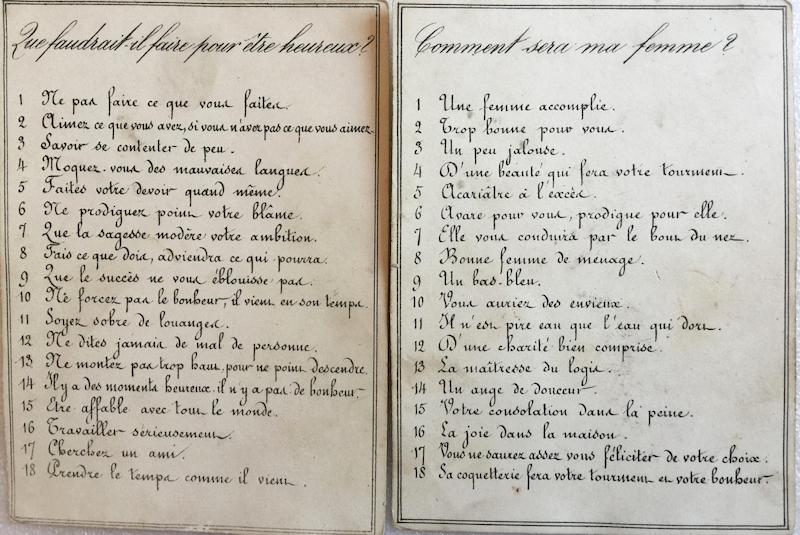 Que faudrait-il faire pour être heureux?
1 Ne pas faire ce que vous faites.
2 Aimez ce que vous avez, si vous n'avez pas ce que vous aimez.
3 Savoir se contenter de peu.
4 Moquez-vous des mauvaises langues.
5 Faites votre devoir quand même.
6 Ne prodiguez point votre blâme.
7 Que la sagesse modère votre ambition.
8 Fais ce que dois, adviendra ce qui pourra.
9 Que le succès ne vous éblouisse pas.
10 Ne forcez pas le bonheur, il vient en son temps.
11 Soyez sobre de louanges.
12 Ne dites jamais de mal de personne.
13 Ne montez pas trop haut, pour ne point descendre.
14 Il y a des moments heureux, il n'y a pas de bonheur.
15 Etre affable avec tout le monde.
16 Travailler sérieusement.
17 Cherchez un ami.
18 Prendre le temps comme il vient.
Comment sera ma femme?
1 Une femme accomplie.
2 Trop bonne pour vous.
3 Un peu jalouse.
4 D'une beauté qui fera votre tourment.
5 Acariâtre à l'excès.
6 Avare pour vous, prodigue pour elle.
7 Elle vous conduira par le bout du nez.
8 Bonne femme de ménage.
9 Un bas-bleu.
10 Vous auriez des envieux.
11 Il n'est pire eau que l'eau qui dort.
12 D'une charité bien comprise.
13 La maîtresse du logis.
14 Un ange de douceur.
15 Votre consolation dans la peine.
16 La joie dans la maison.
17 Vous ne saurez assez vous féliciter de votre choix.
18 Sa coquetterie fera votre tourment et votre bonheur.